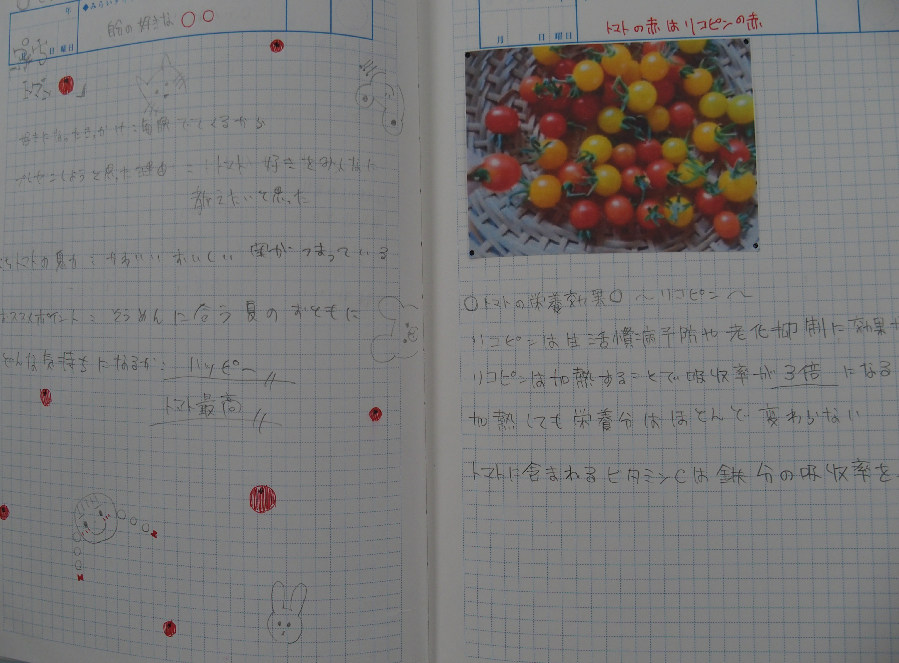 自分の好きな○○
日 曜日
きになったきっかけ:毎年でてくるから
プレゼンしようと思った理由:トマト好きをみんなに
教えたいと思った
ミニトマトの魅力:かわいい おいしい 栄養がつまっている
オススメポイント:そうめんに合う夏のおともに
どんな気持ちになるか:ハッピー
トマト最高
月 日 曜日
トマトの赤はリコピンの赤
○トマトの栄養効果○ ～リコピン～
リコピンは生活慣病予防や老化抑制に効果
リコピンは加熱することで吸収率が3倍になる
加熱しても栄養分はほとんど変わらない
トマトに含まれるビタミンCは鉄分の吸収率を